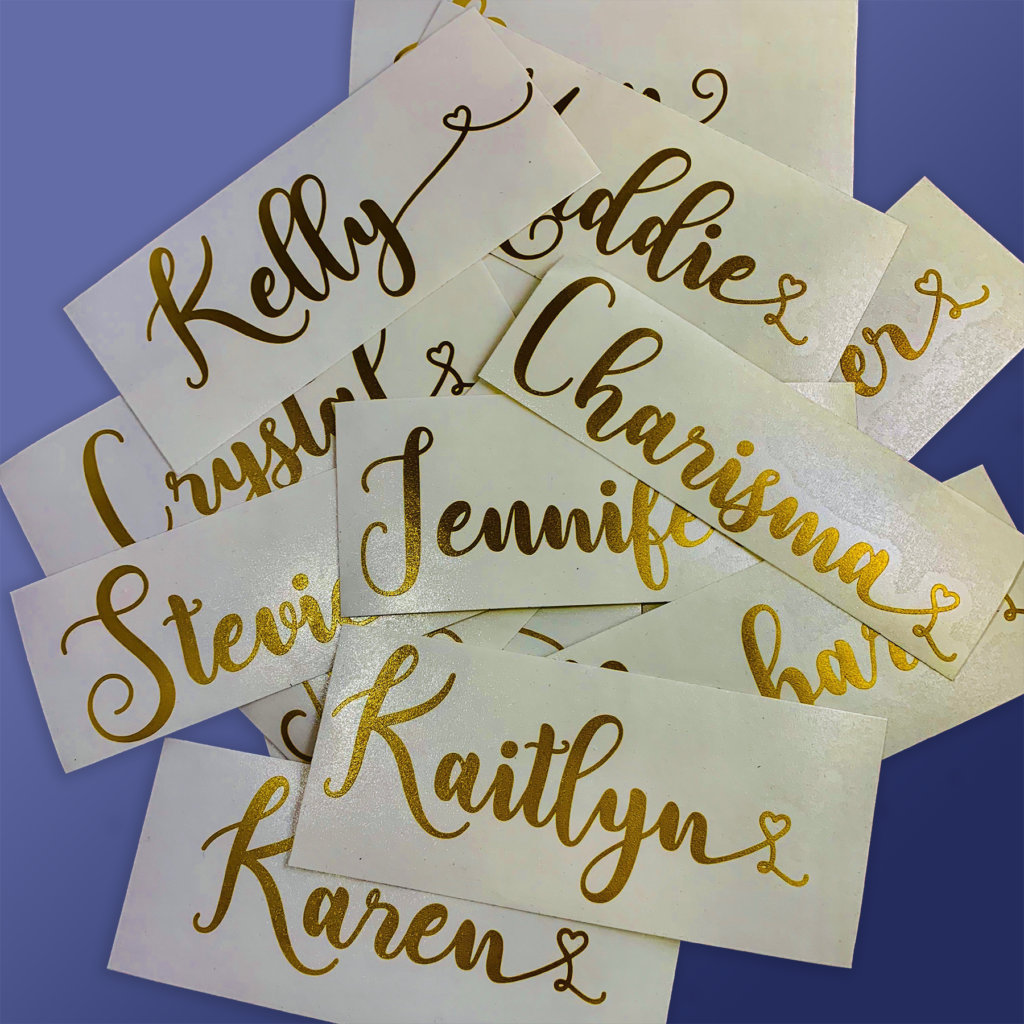 Kelly
ddie
er
Charisma
Crystal
Jennife
Stevi
har
Kaitlyn
Karen